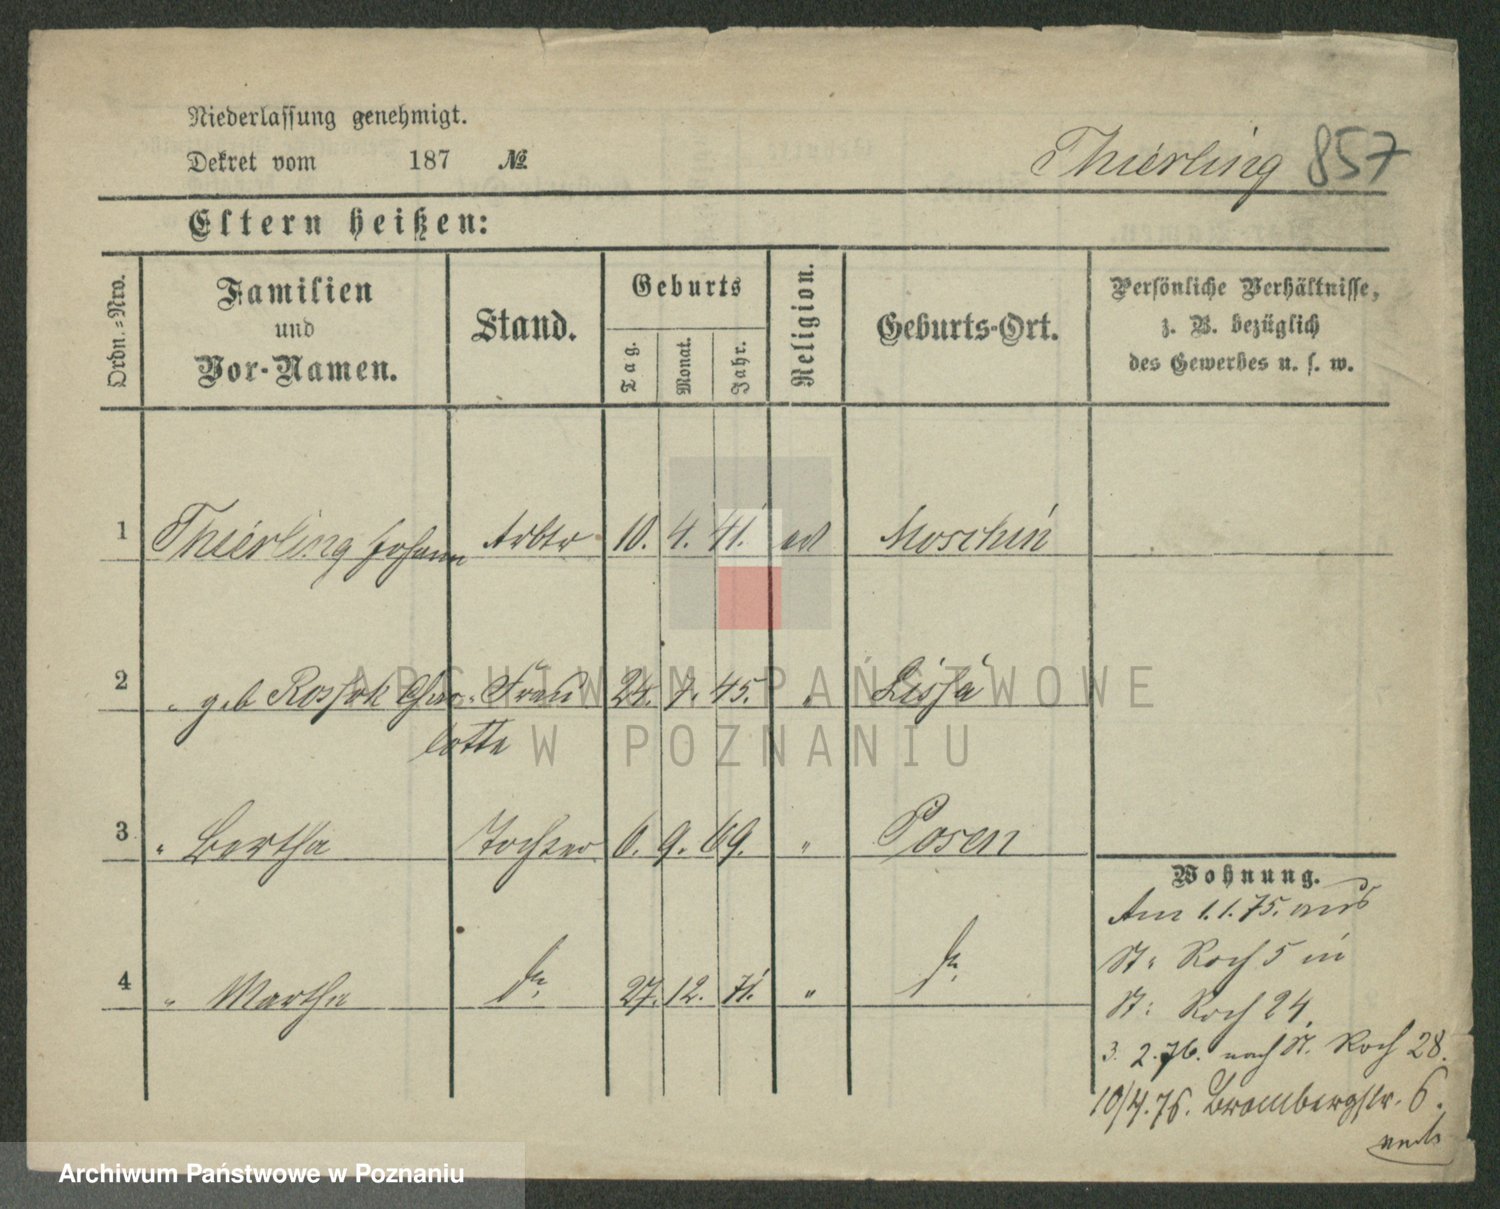 Niederlassung genehmigt.
Dekret vom 187 №
Thierling 857
Eltern heißen:
Ordn.-Nro.
Familien und Vor-Namen.
Stand.
Geburts
Tag. Monat. Jahr.
Religion.
Geburts-Ort.
Persönliche Verhältnisse,
z. B. bezüglich
des Gewerbes u. s. w.
1 Thierling Johann Arbtr 10. 4. 41. ev Moschin
2 " geb Rossek Char- Frau 24. 7. 45. " Lissa
lotte
3 " Bertha Tochter 6. 9. 69. " Posen
4 " Martha do 27. 12. 71. " do
Wohnung.
Am 1.1.75. aus
St: Roch 5 in
St: Roch 24.
3. 2. 76. nach St. Roch 28.
10/4.76. Brombergstr. 6.
ARCHIWUM PAŃSTWOWE
W POZNANIU
Archiwum Państwowe w Poznaniu